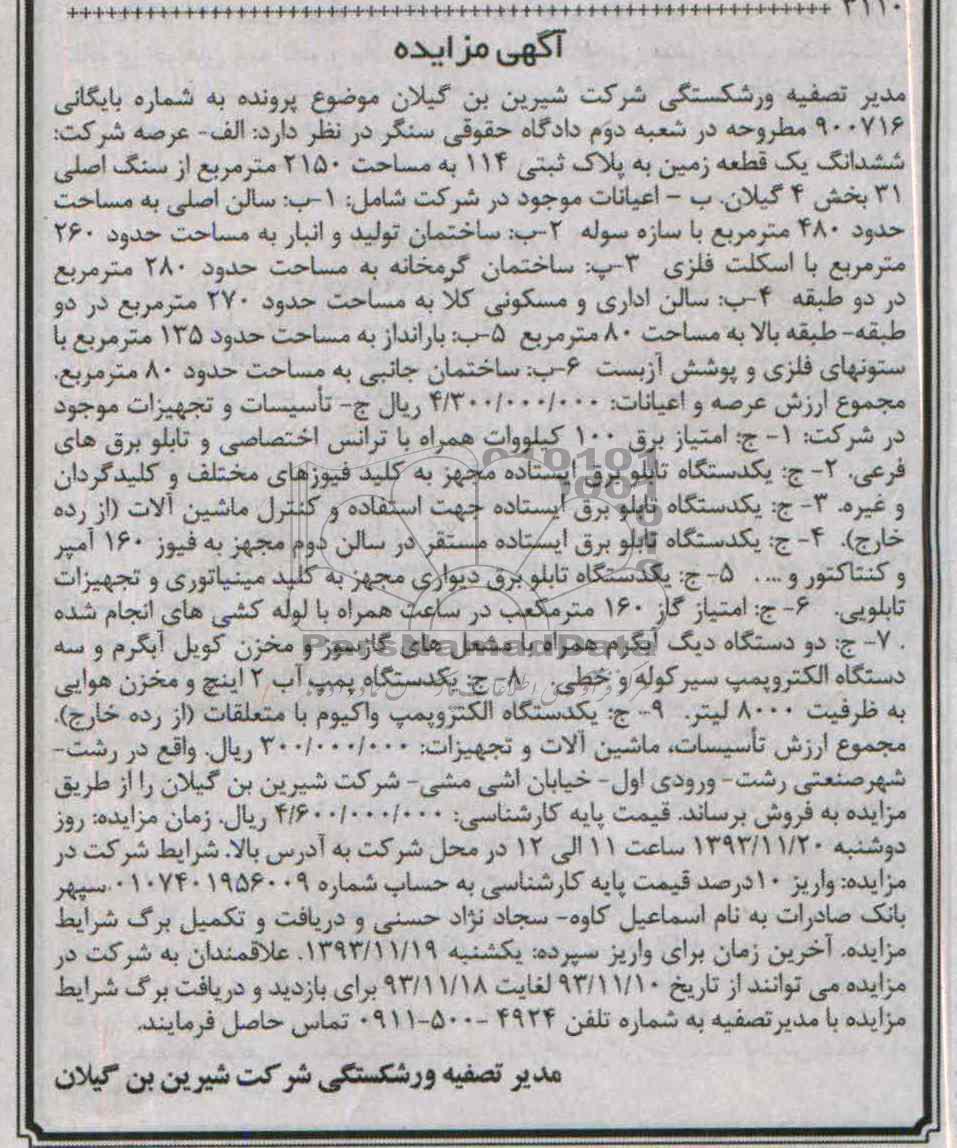 ۳۱۱۰ ++++++++++++++++++++++++++++++++++++++++++++++++
آگهی مزایده
مدیر تصفیه ورشکستگی شرکت شیرین بن گیلان موضوع پرونده به شماره بایگانی
۹۰۰۷۱۶ مطروحه در شعبه دوم دادگاه حقوقی سنگر در نظر دارد: الف- عرصه شرکت:
ششدانگ یک قطعه زمین به پلاک ثبتی ۱۱۴ به مساحت ۲۱۵۰ مترمربع از سنگ اصلی
۳۱ بخش ۴ گیلان. ب - اعیانات موجود در شرکت شامل: ۱-ب: سالن اصلی به مساحت
حدود ۴۸۰ مترمربع با سازه سوله ۲-ب: ساختمان تولید و انبار به مساحت حدود ۲۶۰
مترمربع با اسکلت فلزی ۳-پ: ساختمان گرمخانه به مساحت حدود ۲۸۰ مترمربع
در دو طبقه ۴-ب: سالن اداری و مسکونی کلاً به مساحت حدود ۲۷۰ مترمربع در دو
طبقه- طبقه بالا به مساحت ۸۰ مترمربع ۵-ب: بارانداز به مساحت حدود ۱۳۵ مترمربع با
ستونهای فلزی و پوشش آزبست ۶-ب: ساختمان جانبی به مساحت حدود ۸۰ مترمربع.
مجموع ارزش عرصه و اعیانات: ۴/۳۰۰/۰۰۰/۰۰۰ ریال ج- تأسیسات و تجهیزات موجود
در شرکت: ۱- ج: امتیاز برق ۱۰۰ کیلووات همراه با ترانس اختصاصی و تابلو برق های
فرعی. ۲- ج: یکدستگاه تابلو برق ایستاده مجهز به کلید فیوزهای مختلف و کلیدگردان
و غیره. ۳- ج: یکدستگاه تابلو برق ایستاده جهت استفاده و کنترل ماشین آلات (از رده
خارج). ۴- ج: یکدستگاه تابلو برق ایستاده مستقر در سالن دوم مجهز به فیوز ۱۶۰ آمپر
و کنتاکتور و ... . ۵- ج: یکدستگاه تابلو برق دیواری مجهز به کلید مینیاتوری و تجهیزات
تابلویی. ۶- ج: امتیاز گاز ۱۶۰ مترمکعب در ساعت همراه با لوله کشی های انجام شده
. ۷- ج: دو دستگاه دیگ آبگرم همراه با مشعل های گازسوز و مخزن کویل آبگرم و سه
دستگاه الکتروپمپ سیرکوله و خطی. ۸- ج: یکدستگاه پمپ آب ۲ اینچ و مخزن هوایی
به ظرفیت ۸۰۰۰ لیتر. ۹- ج: یکدستگاه الکتروپمپ واکیوم با متعلقات (از رده خارج).
مجموع ارزش تأسیسات، ماشین آلات و تجهیزات: ۳۰۰/۰۰۰/۰۰۰ ریال. واقع در رشت-
شهرصنعتی رشت- ورودی اول- خیابان اشی مشی- شرکت شیرین بن گیلان را از طریق
مزایده به فروش برساند. قیمت پایه کارشناسی: ۴/۶۰۰/۰۰۰/۰۰۰ ریال. زمان مزایده: روز
دوشنبه ۱۳۹۳/۱۱/۲۰ ساعت ۱۱ الی ۱۲ در محل شرکت به آدرس بالا. شرایط شرکت در
مزایده: واریز ۱۰درصد قیمت پایه کارشناسی به حساب شماره ۰۱۰۷۴۰۱۹۵۶۰۰۹ سپهر
بانک صادرات به نام اسماعیل کاوه- سجاد نژاد حسنی و دریافت و تکمیل برگ شرایط
مزایده. آخرین زمان برای واریز سپرده: یکشنبه ۱۳۹۳/۱۱/۱۹. علاقمندان به شرکت در
مزایده می توانند از تاریخ ۹۳/۱۱/۱۰ لغایت ۹۳/۱۱/۱۸ برای بازدید و دریافت برگ شرایط
مزایده با مدیرتصفیه به شماره تلفن ۴۹۲۴ -۵۰۰-۰۹۱۱ تماس حاصل فرمایند.
مدیر تصفیه ورشکستگی شرکت شیرین بن گیلان
ParsNamadData